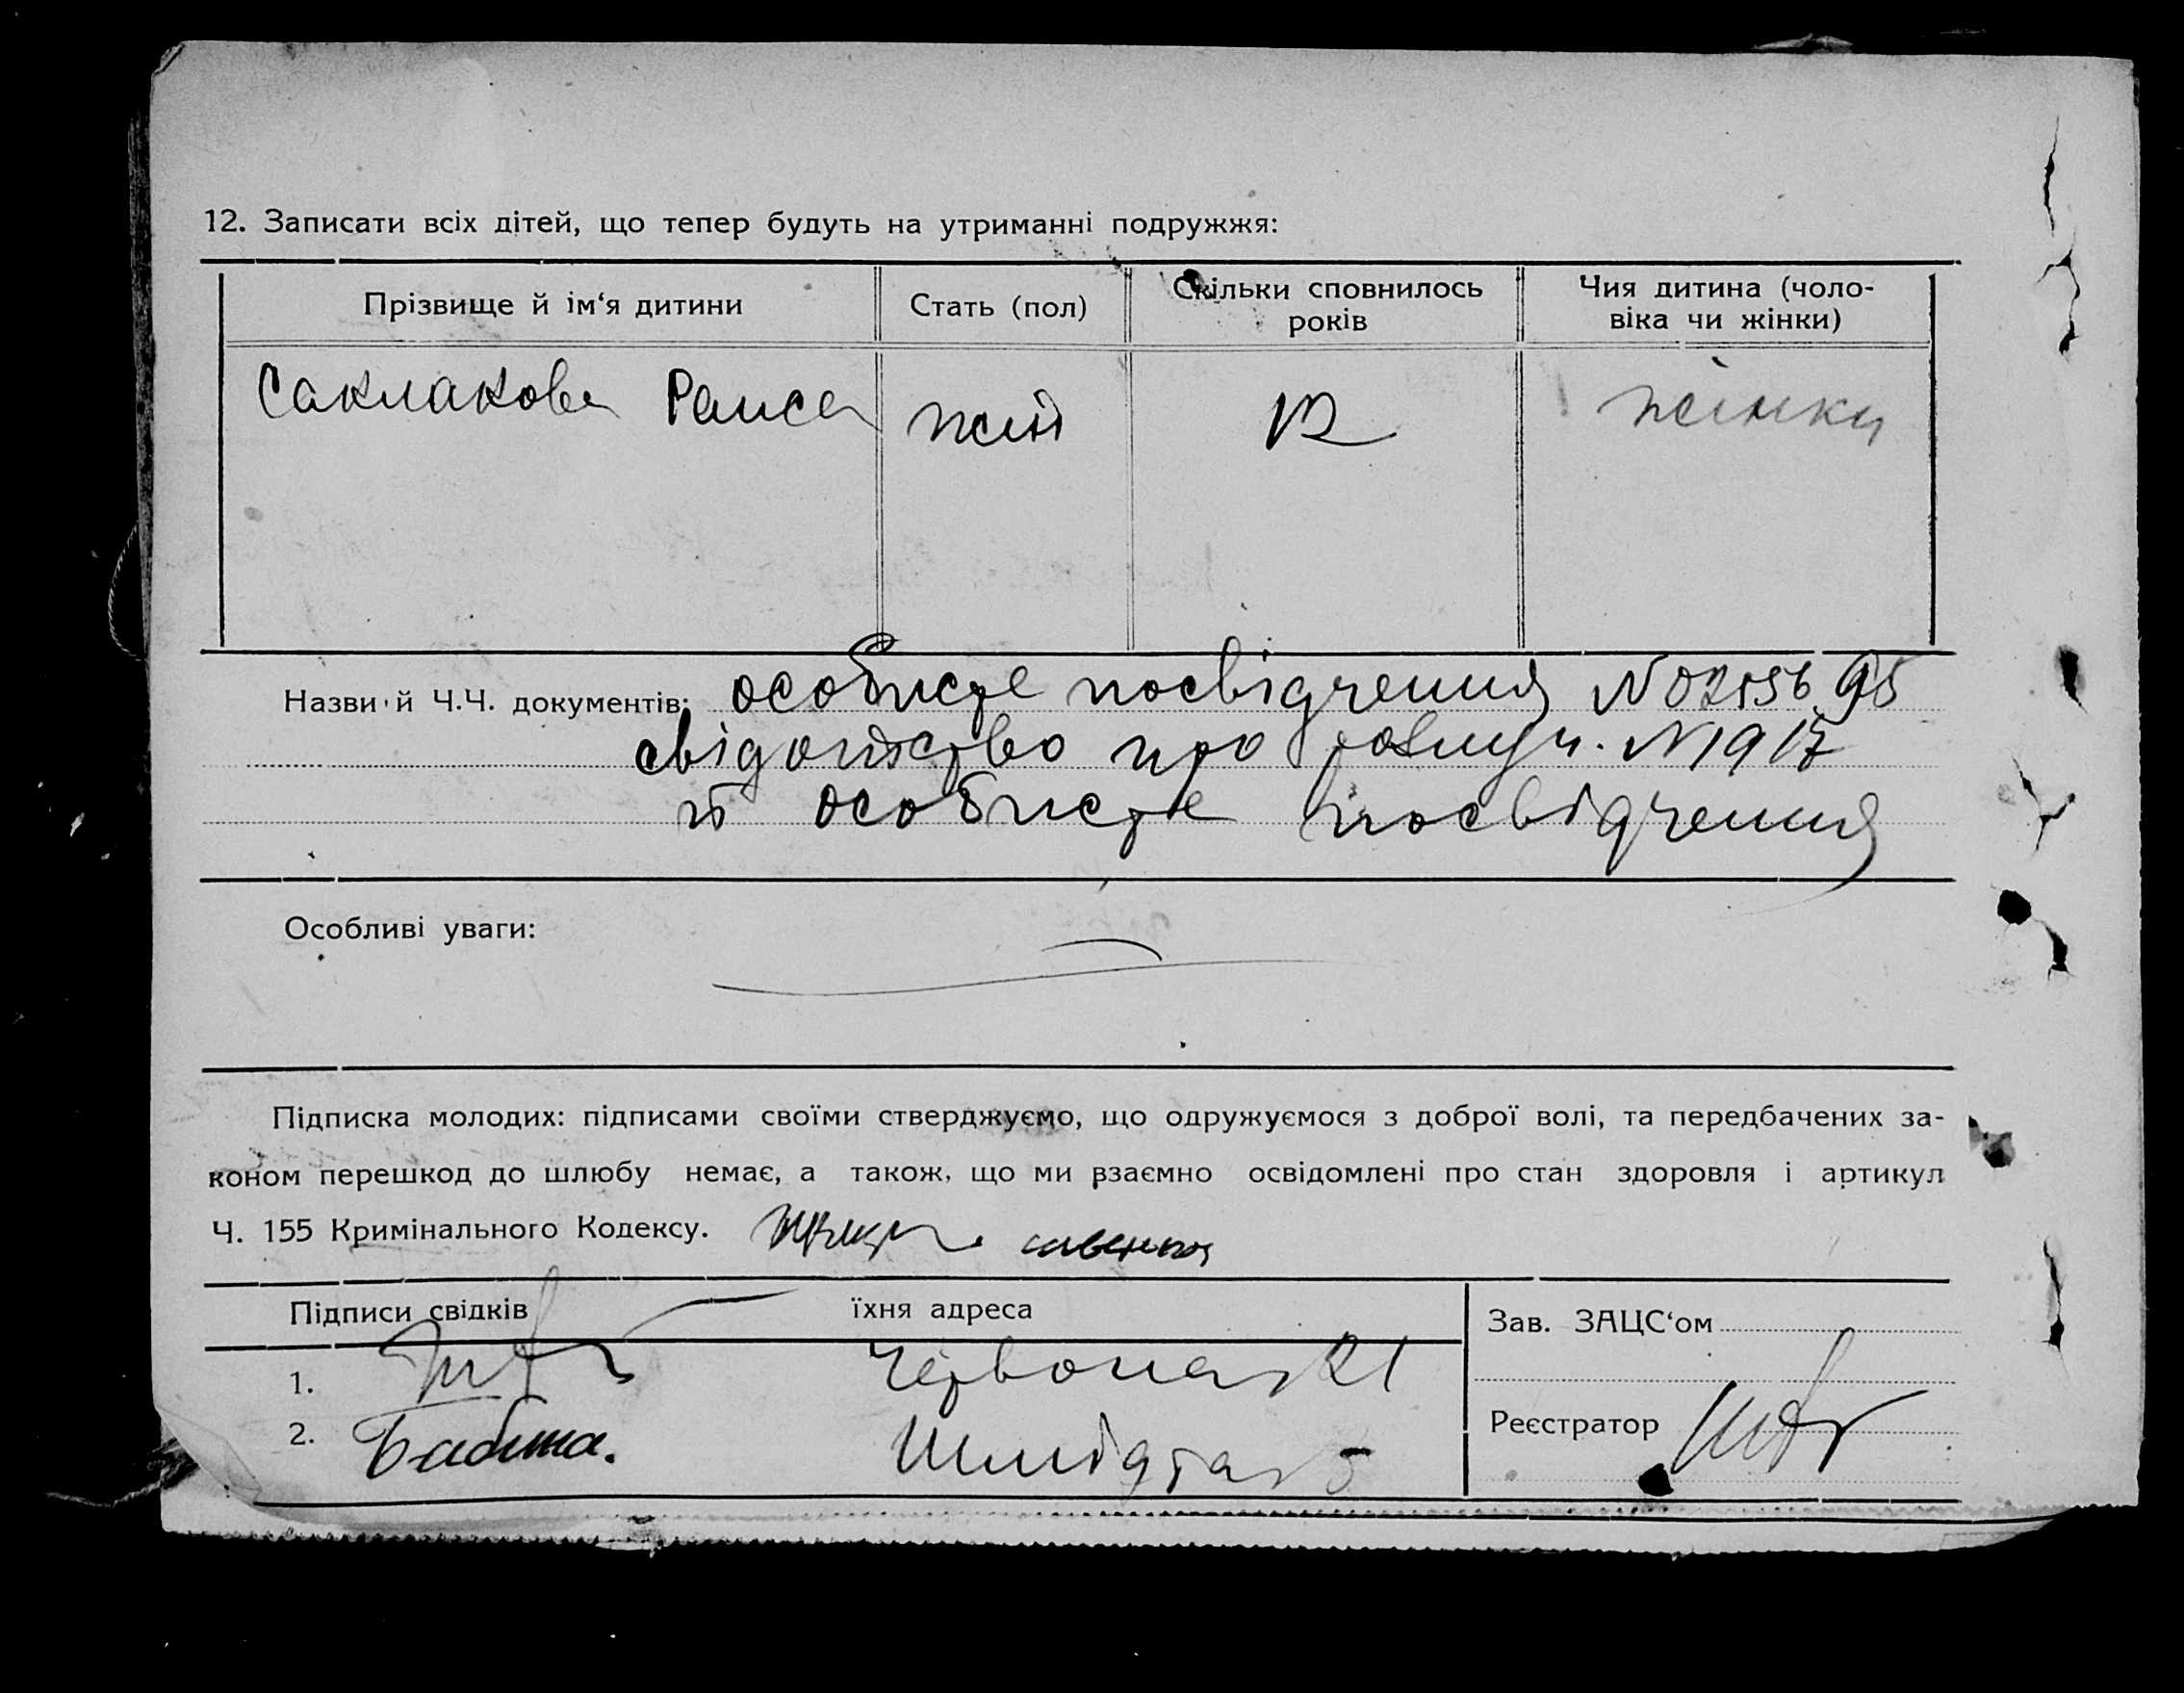 12. Записати всіх дітей, що тепер будуть на утриманні подружжя:
Прізвище й ім‘я дитини
Стать (пол)
Скільки сповнилось
років
Чия дитина (чоло-
віка чи жінки)
Саклакова Раиса
жін
12
жінки
Назви й Ч.Ч. документів: особисте посвідчення
свідоцтво про розлуч. N 1917
й особисте посвідчення
Особливі уваги:
Підписка молодих: підписами своїми стверджуємо, що одружуємося з доброї волі, та передбачених за-
коном перешкод до шлюбу немає, а також, що ми взаємно освідомлені про стан здоровля і артикул
Ч. 155 Кримінального Кодексу.
Підписи свідків
їхня адреса
Зав. ЗАЦС‘ом
1.
Червона 21
Реєстратор
2.
Шмідта 5